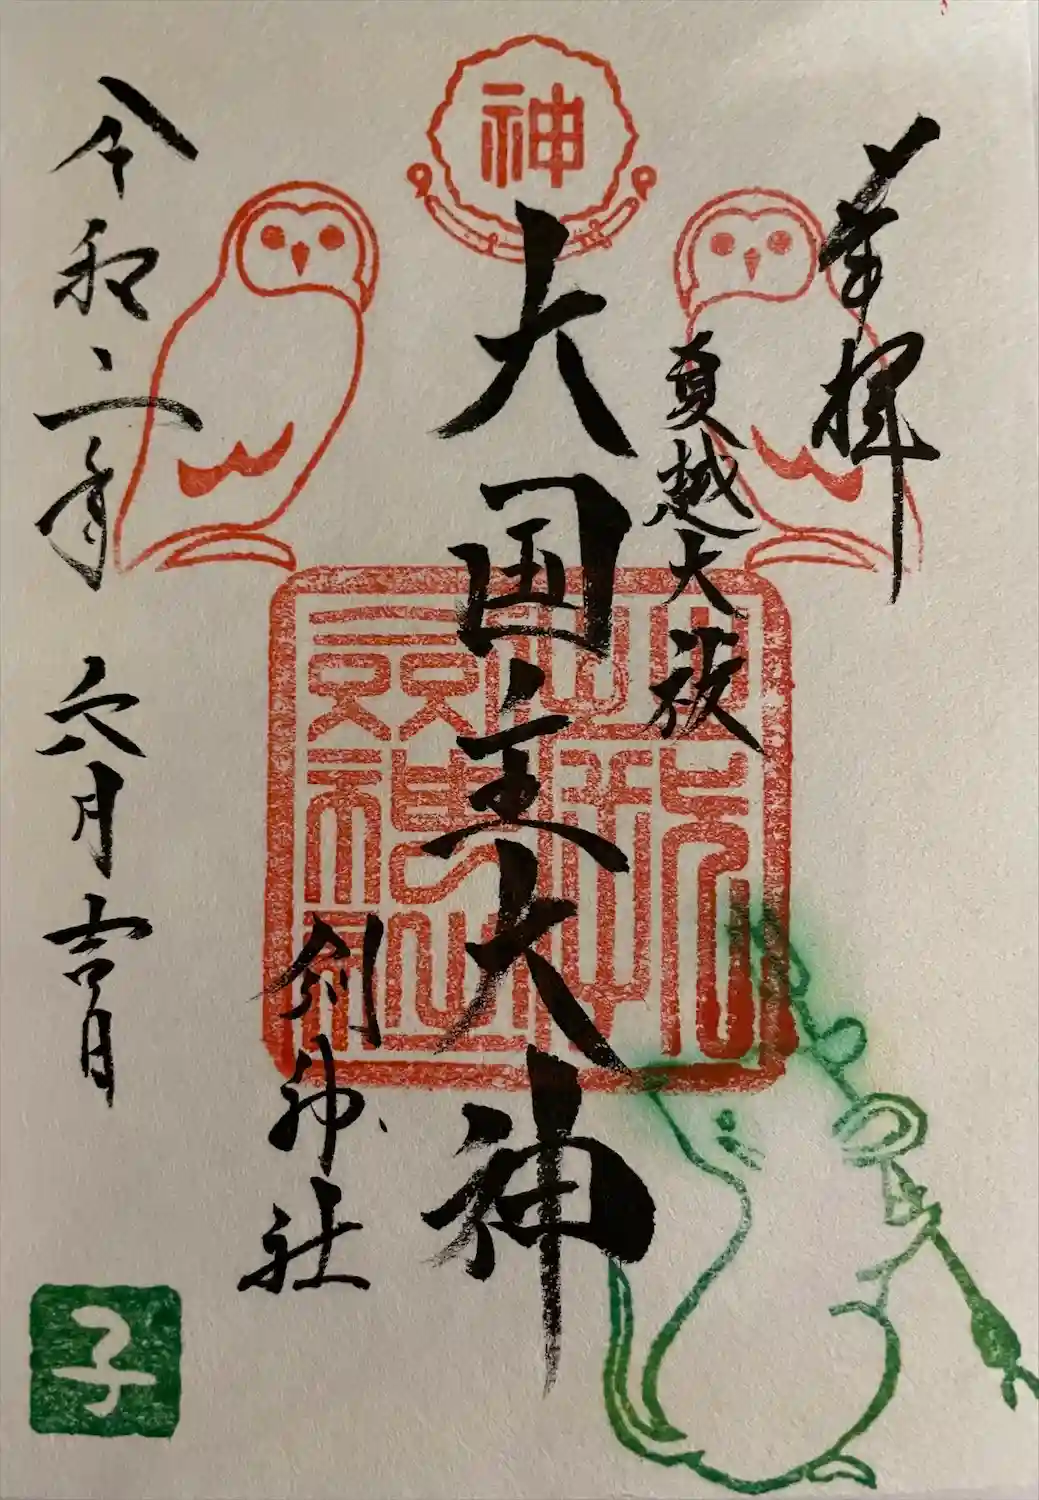 奉拝
夏越大祓
神
大国主大神
剣神社
令和二年 六月吉月
子